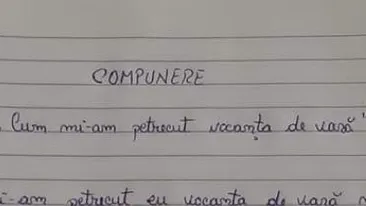 COMPUNERE
Cum mi-am petrecut vacanța de vară"
i-am petrecut eu vacanta de vară